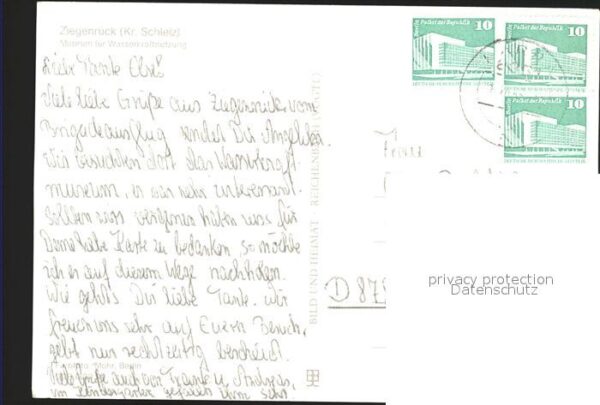 Ziegenrück (Kr. Schleiz)
Museum der Wasserkraftnutzung
Liebe Tante Else!
Viele liebe Grüße aus Ziegenrück vom
Brigadeausflug sendet Dir
Wir besuchten dort das Wasserkraft
museum, es war sehr interessant.
Solltem wir vergessen haben uns für
Deine liebe Karte zu bedanken, so möchte
ich es auf diesem Wege nachholen.
Wie gehts Dir liebe Tante. Wir
freuen uns sehr auf Euern Besuch,
gebt nur rechtzeitig bescheid.
Viele Grüße auch von Frank u. Andreas,
im Kindergarten gefällt es ihm sehr
BILD UND HEIMAT REICHENBACH
Berlin, Palast der Republik 10
DEUTSCHE DEMOKRATISCHE REPUBLIK
Berlin, Palast der Republik 10
DEUTSCHE DEMOKRATISCHE REPUBLIK
Berlin, Palast der Republik 10
DEUTSCHE DEMOKRATISCHE REPUBLIK
Frau
D 872
privacy protection
Datenschutz